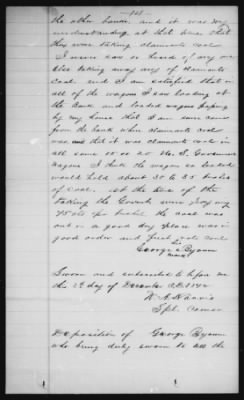 the other banks, and it was my
understanding at that time that
they were taking claimants coal
I never saw or heard of any one
else taking away any of claimants
coal and I am satisfied that
all of the wagons I saw loading at
the bank and loaded wagons passing
by my house that I am sure came
from the bank when claimants coal
was, and that it was claimants coal in
all some 20 or 40 U. S. Government
Wagons I think the wagons so loaded
would hold about 30 to 35 bushels
of coal. At the time of the
taking the Goverts were paying
45 cts per bushel the coal was
out in a good dry place was in
good order and first rate coal
George Byoum
his
mark
Sworn and subscribed to before me
this 2d day of December A.D. 1872
Spl. Comr
Deposition of George Byoum
who being duly sworn to all the